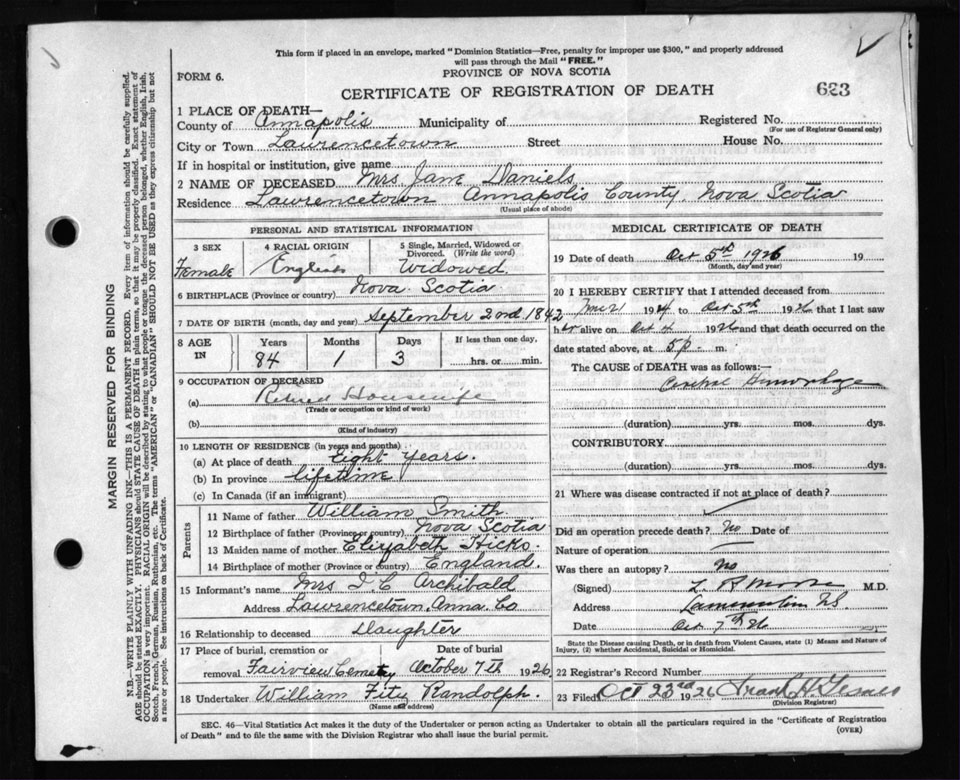 This form if placed in an envelope, marked "Dominion Statistics—Free, penalty for improper use $300," and properly addressed
will pass through the Mail "FREE."
FORM 6.
PROVINCE OF NOVA SCOTIA
CERTIFICATE OF REGISTRATION OF DEATH
623
1 PLACE OF DEATH—
County of Annapolis Municipality of Registered No.
(For use of Registrar General only)
City or Town Lawrencetown Street House No.
If in hospital or institution, give name
2 NAME OF DECEASED Mrs Jane Daniels
Residence Lawrencetown Annapolis County, Nova Scotia
(Usual place of abode)
PERSONAL AND STATISTICAL INFORMATION
3 SEX 4 RACIAL ORIGIN 5 Single, Married, Widowed or Divorced. (Write the word)
Female English Widowed
6 BIRTHPLACE (Province or country) Nova Scotia
7 DATE OF BIRTH (month, day and year) September 2nd 1842
8 AGE IN Years Months Days If less than one day,
84 1 3 hrs. or min.
9 OCCUPATION OF DECEASED
(a) Retired Housewife
(Trade or occupation or kind of work)
(b)
(Kind of industry)
10 LENGTH OF RESIDENCE (in years and months)
(a) At place of death Eight years.
(b) In province lifetime
(c) In Canada (if an immigrant)
Parents
11 Name of father William Smith
12 Birthplace of father (Province or country) Nova Scotia
13 Maiden name of mother Elizabeth Hicks.
14 Birthplace of mother (Province or country) England.
15 Informant's name Mrs I. C. Archibald
Address Lawrencetown, Anna. Co
16 Relationship to deceased Daughter
17 Place of burial, cremation or removal Fairview Cemetery Date of burial October 7th 1926
18 Undertaker William Fitz Randolph.
(Name and address)
MEDICAL CERTIFICATE OF DEATH
19 Date of death Oct 5th 1926 19
(Month, day and year)
20 I HEREBY CERTIFY that I attended deceased from
1924 to Oct 5th 1926 that I last saw
her alive on Oct 4 1926 and that death occurred on the
date stated above, at 5 p. m.
The CAUSE OF DEATH was as follows:—
Cerebral Hemorrhage
(duration) yrs. mos. dys.
CONTRIBUTORY
(duration) yrs. mos. dys.
21 Where was disease contracted if not at place of death?
Did an operation precede death? No Date of
Nature of operation
Was there an autopsy? No
(Signed) L. R. Morse M.D.
Address Lawrencetown NS
Date Oct 7th 26
State the Disease causing Death, or in death from Violent Causes, state (1) Means and Nature of
Injury, (2) whether Accidental, Suicidal or Homicidal.
22 Registrar's Record Number
23 Filed Oct 23rd 1926 Frank H.
(Division Registrar)
SEC. 46—Vital Statistics Act makes it the duty of the Undertaker or person acting as Undertaker to obtain all the particulars required in the "Certificate of Registration
of Death" and to file the same with the Division Registrar who shall issue the burial permit.
(OVER)
MARGIN RESERVED FOR BINDING
N.B.—WRITE PLAINLY WITH UNFADING INK—THIS IS A PERMANENT RECORD. Every item of information should be carefully supplied.
AGE should be stated EXACTLY. PHYSICIANS should STATE CAUSE OF DEATH in plain terms, so that it may be properly classified. Exact statement of
OCCUPATION is very important. RACIAL ORIGIN will be described by stating to what people or tongue the deceased person belonged, whether English, Irish,
Scotch, French, German, Russian, Ruthenian, etc. The terms "AMERICAN" or "CANADIAN" SHOULD NOT BE USED as they express citizenship but not
a race or people. See instructions on back of Certificate.